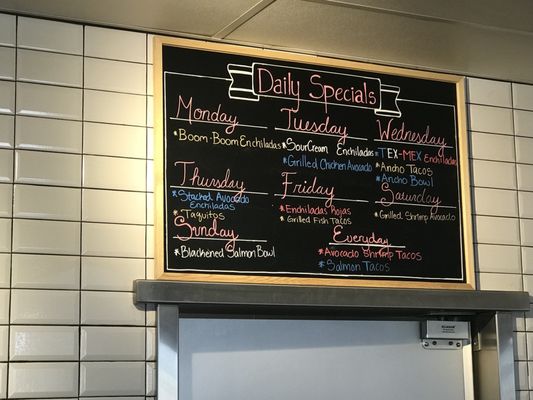 Daily Specials
Monday
*Boom-Boom Enchiladas
Tuesday
*Sour Cream Enchiladas
*Grilled Chicken Avocado
Wednesday
*TEX-MEX Enchiladas
*Ancho Tacos
*Ancho Bowl
Thursday
*Stacked Avocado
Enchiladas
*Taquitos
Friday
*Enchiladas Rojas
*Grilled Fish Tacos
Saturday
*Grilled Shrimp Avocado
Sunday
*Blackened Salmon Bowl
Everyday
*Avocado Shrimp Tacos
*Salmon Tacos